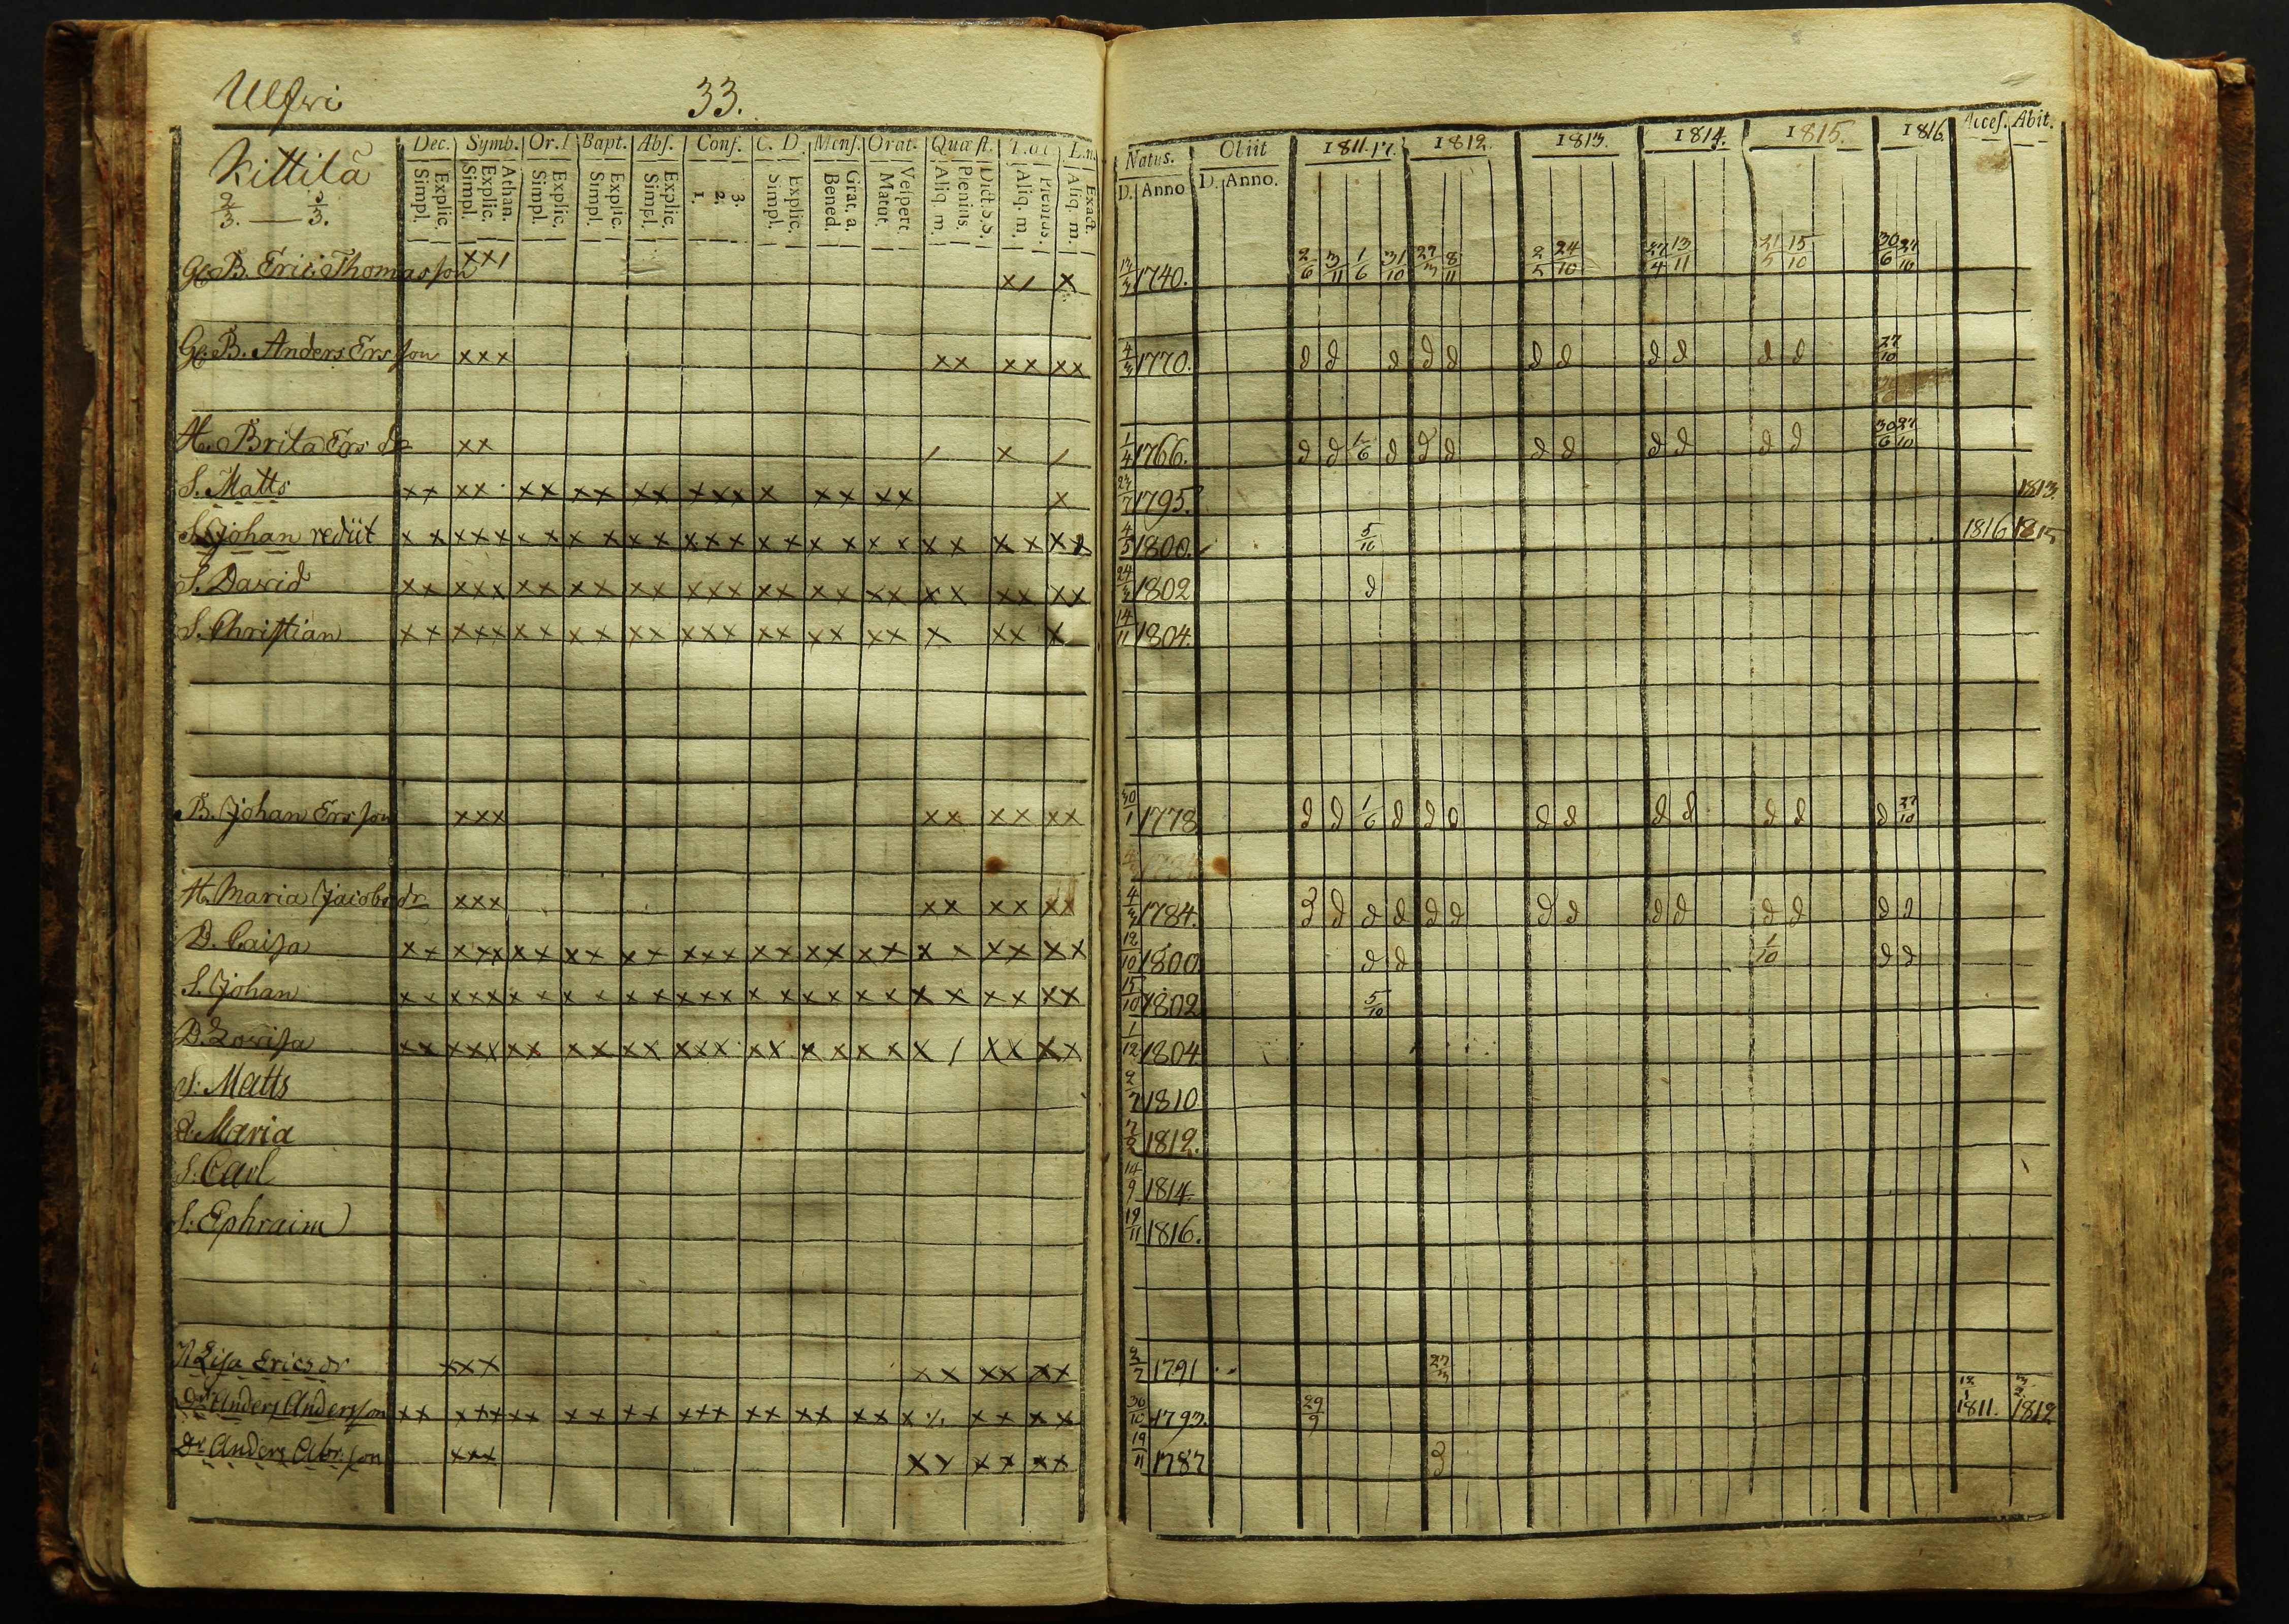 Ulfvi 33.
Kittilä
2/3. — 3/3.
Dec. Symb. Or. D Bapt. Abs. Conf. C. D. Mens. Orat. Quæst. L.n.
Explic. Simpl. Athan. Explic. Simpl. Explic. Simpl. Explic. Simpl. Explic. Simpl. 3. 2. 1. Explic. Simpl. Grat. a. Bened. Vespert. Matut. Dict. S. S. Plenius. Aliq. m. Plenius. Aliq. m. Exact. Aliq. m.
Natus. Obiit 1811.17. 1812. 1813. 1814. 1815. 1816. Acces. Abit.
D. Anno D. Anno.
Gl. B. Eric Thomasson xx/ x/ x 1740. 2/6 3/11 1/6 31/10 27/3 8/11 2/5 24/10 13/11 15/10 30/6 27/10
Gl. B. Anders Ersson xxx xx xx xx 4/3 1770. d d d d d d d d d d d 27/10
H. Brita Ersdr xx / x / 1/4 1766. d d 1/6 d d d d d d d d d 30/6 27/10
S. Matts xx xx xx xx xx xxx x xx xx x 1795. 1813.
S. Johan rediit xx xxxx xx xx xx xxx xx xx xx xx xx xx 1800. 5/10 1816 1815
S. David xx xxx xx xx xx xxx xx xx xx xx xx xx 1802 d
S. Christian xx xxx xx xx xx xxx xx xx xx x xx x 14/11 1804.
B. Johan Ersson xxx xx xx xx 30/1 1778 d d 1/6 d d d d d d d d d d 27/10
H. Maria Jacobsdr xxx xx xx xx 4/3 1784. d d d d d d d d d d d d d
D. Caisa xx xxx xx xx xx xxx xx xx xx xx xx xx 12/10 1800 d d 1/10 d d
S. Johan xx xxx xx xx xx xxx xx xx xx xx xx xx 15/10 1802 5/10
D. Lovisa xx xxx xx xx xx xxx xx xx xx x/ xx xx 1/12 1804
S. Matts 2/7 1810
D. Maria 1812.
S. Carl 14/9 1814.
S. Ephraim 19/11 1816.
Lisa Ericsdr xxx xx xx xx 1791 27/3
Dr. Anders Andersson xx xxx xx xx xx xxx xx xx xx x ./. xx xx 30/10 1793. 29/9 1811. 1812
Dr. Anders Abr.son xxx xx xx xx 19/11 1787